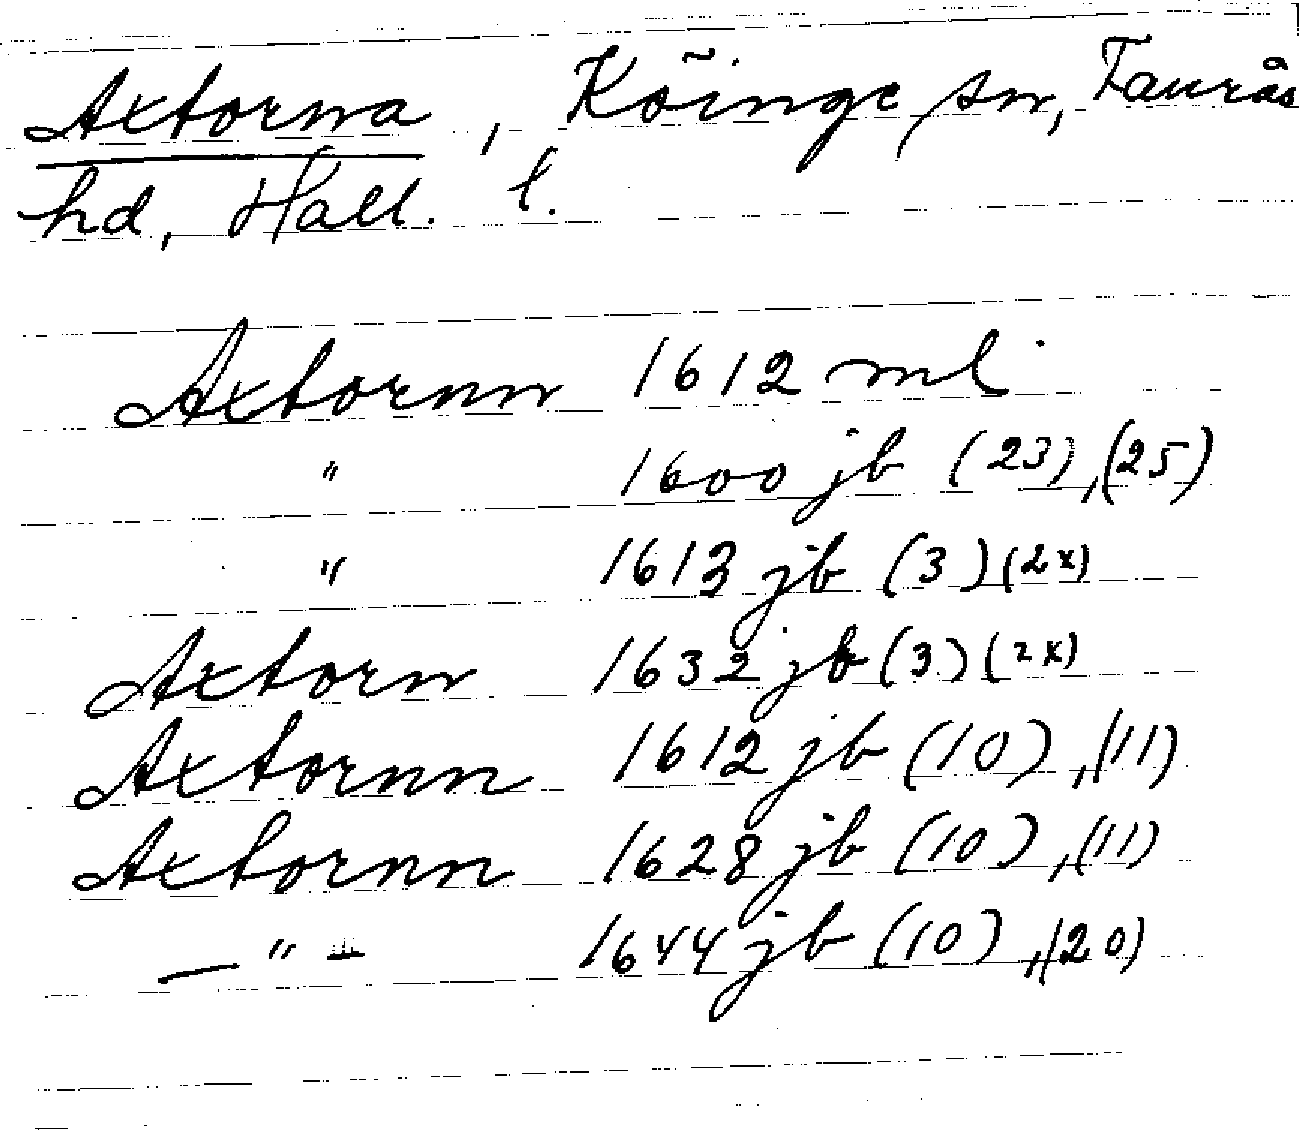 Axtorna, Köinge sn, Faurås
hd, Hall. l.
Axtornn 1612 ml
" 1600 jb (23), (25)
" 1613 jb (3) (2x)
Axtorn 1632 jb (3) (2x)
Axtornn 1612 jb (10), (11)
Axtornn 1628 jb (10), (11)
—"— 1644 jb (10), (20)